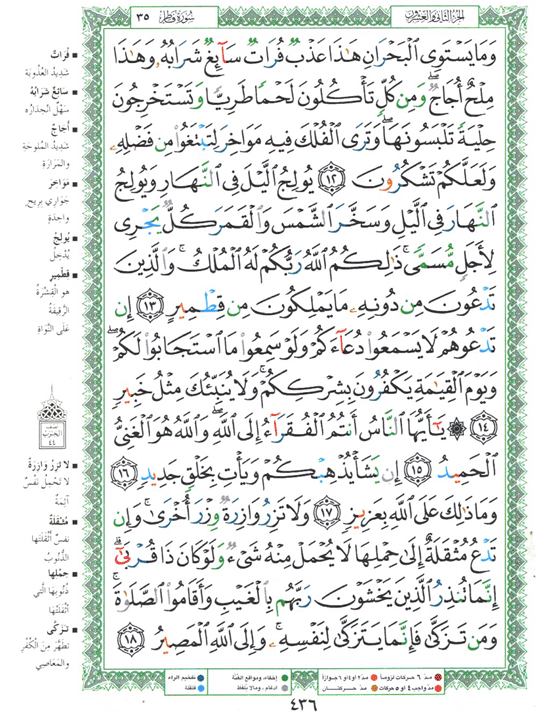 الجزء الثاني والعشرون
سورة فاطر
٣٥
وَمَا يَسْتَوِى ٱلْبَحْرَانِ هَٰذَا عَذْبٌ فُرَاتٌ سَآئِغٌ شَرَابُهُۥ وَهَٰذَا
مِلْحٌ أُجَاجٌ ۖ وَمِن كُلٍّ تَأْكُلُونَ لَحْمًا طَرِيًّا وَتَسْتَخْرِجُونَ
حِلْيَةً تَلْبَسُونَهَا ۖ وَتَرَى ٱلْفُلْكَ فِيهِ مَوَاخِرَ لِتَبْتَغُوا۟ مِن فَضْلِهِۦ
وَلَعَلَّكُمْ تَشْكُرُونَ ١٢ يُولِجُ ٱلَّيْلَ فِى ٱلنَّهَارِ وَيُولِجُ
ٱلنَّهَارَ فِى ٱلَّيْلِ وَسَخَّرَ ٱلشَّمْسَ وَٱلْقَمَرَ كُلٌّ يَجْرِى
لِأَجَلٍ مُّسَمًّى ۚ ذَٰلِكُمُ ٱللَّهُ رَبُّكُمْ لَهُ ٱلْمُلْكُ ۚ وَٱلَّذِينَ
تَدْعُونَ مِن دُونِهِۦ مَا يَمْلِكُونَ مِن قِطْمِيرٍ ١٣ إِن
تَدْعُوهُمْ لَا يَسْمَعُوا۟ دُعَآءَكُمْ وَلَوْ سَمِعُوا۟ مَا ٱسْتَجَابُوا۟ لَكُمْ ۖ
وَيَوْمَ ٱلْقِيَٰمَةِ يَكْفُرُونَ بِشِرْكِكُمْ ۚ وَلَا يُنَبِّئُكَ مِثْلُ خَبِيرٍ
١٤ ۞ يَٰٓأَيُّهَا ٱلنَّاسُ أَنتُمُ ٱلْفُقَرَآءُ إِلَى ٱللَّهِ ۖ وَٱللَّهُ هُوَ ٱلْغَنِىُّ
ٱلْحَمِيدُ ١٥ إِن يَشَأْ يُذْهِبْكُمْ وَيَأْتِ بِخَلْقٍ جَدِيدٍ ١٦
وَمَا ذَٰلِكَ عَلَى ٱللَّهِ بِعَزِيزٍ ١٧ وَلَا تَزِرُ وَازِرَةٌ وِزْرَ أُخْرَىٰ ۚ وَإِن
تَدْعُ مُثْقَلَةٌ إِلَىٰ حِمْلِهَا لَا يُحْمَلْ مِنْهُ شَىْءٌ وَلَوْ كَانَ ذَا قُرْبَىٰٓ ۗ
إِنَّمَا تُنذِرُ ٱلَّذِينَ يَخْشَوْنَ رَبَّهُم بِٱلْغَيْبِ وَأَقَامُوا۟ ٱلصَّلَوٰةَ ۚ
وَمَن تَزَكَّىٰ فَإِنَّمَا يَتَزَكَّىٰ لِنَفْسِهِۦ ۚ وَإِلَى ٱللَّهِ ٱلْمَصِيرُ ١٨
■ فُرَاتٌ
شَدِيدُ العُذُوبَةِ
■ سَائِغٌ شَرَابُهُ
سَهْلٌ انحِدَارُه
■ أُجَاجٌ
شَدِيدُ المُلُوحَةِ
والمَرَارَةِ
■ مَوَاخِرَ
جَوَارِيَ بِرِيحٍ
وَاحِدَةٍ
■ يُولِجُ
يُدْخِلُ
■ قِطْمِيرٍ
هو القِشْرَةُ
الرَّقِيقَةُ
عَلَى النَّوَاةِ
نصف
الحزب
٤٤
■ لَا تَزِرُ وَازِرَةٌ
لا تَحْمِلُ نَفْسٌ
آثِمَةٌ
■ مُثْقَلَةٌ
نفسٌ أَثْقَلَتْهَا
الذُّنُوبُ
■ حِمْلِهَا
ذُنُوبِهَا الَّتِي
أَثْقَلَتْهَا
■ تَزَكَّىٰ
تَطَهَّرَ مِنَ الكُفْرِ
والمَعَاصِي
مدّ ٦ حركات لزوماً
مدّ ٢ أو ٤ أو ٦ جوازاً
إخفاء، ومواقع الغُنَّة
تفخيم الراء
مدّ واجب ٤ أو ٥ حركات
مدّ حركتـان
ادغام ، ومالا يُلفَظ
قلقلة
٤٣٦